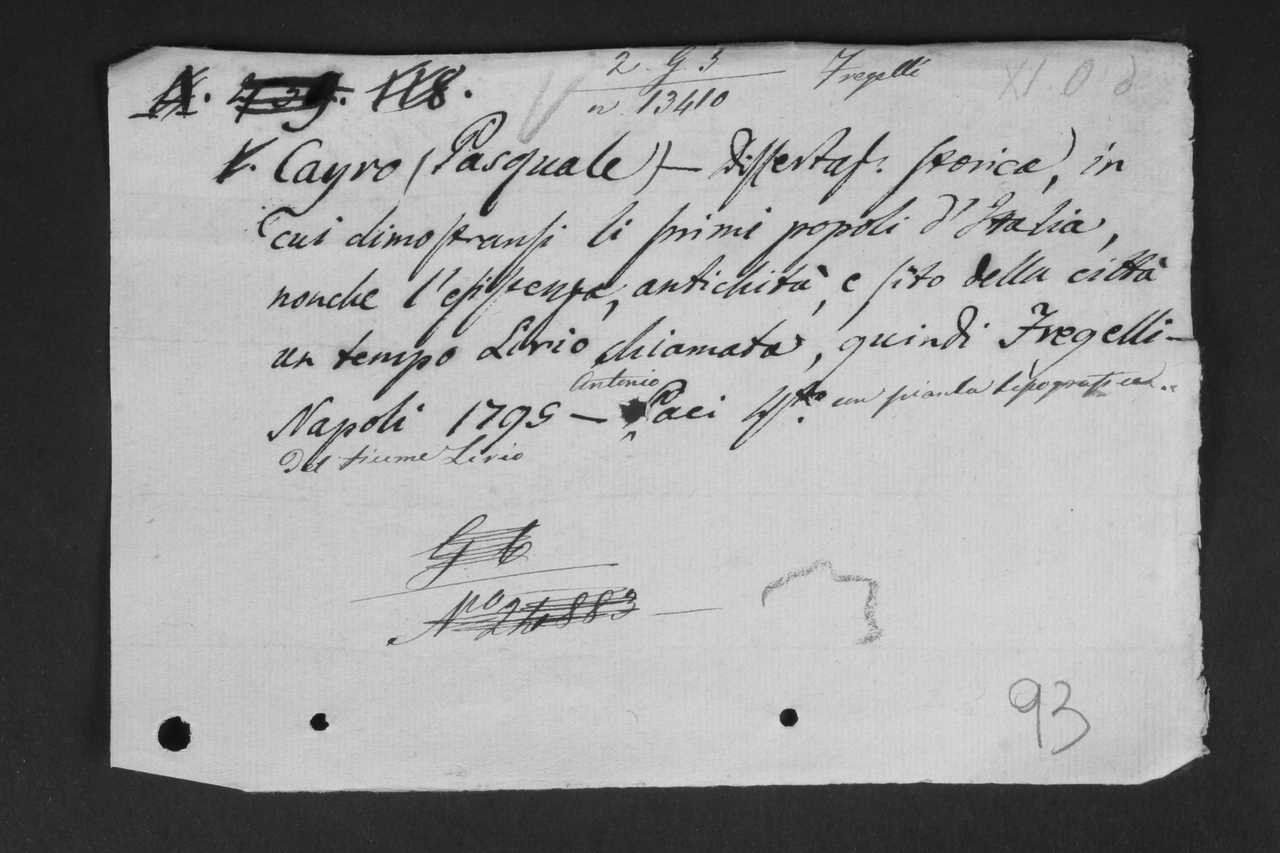 2. G. 3 Fregelli XI. O. 6
n. 13410
V. Cayro (Pasquale) — Dissertaz. storica, in
cui dimostransi li primi popoli d'Italia,
nonche l'esistenza, antichità, e sito della città
un tempo Lirio chiamata, quindi Fregelli —
Antonio
Napoli 1795 — Paci 4to con pianta topografica
del fiume Lirio
G 6
No 24883
93